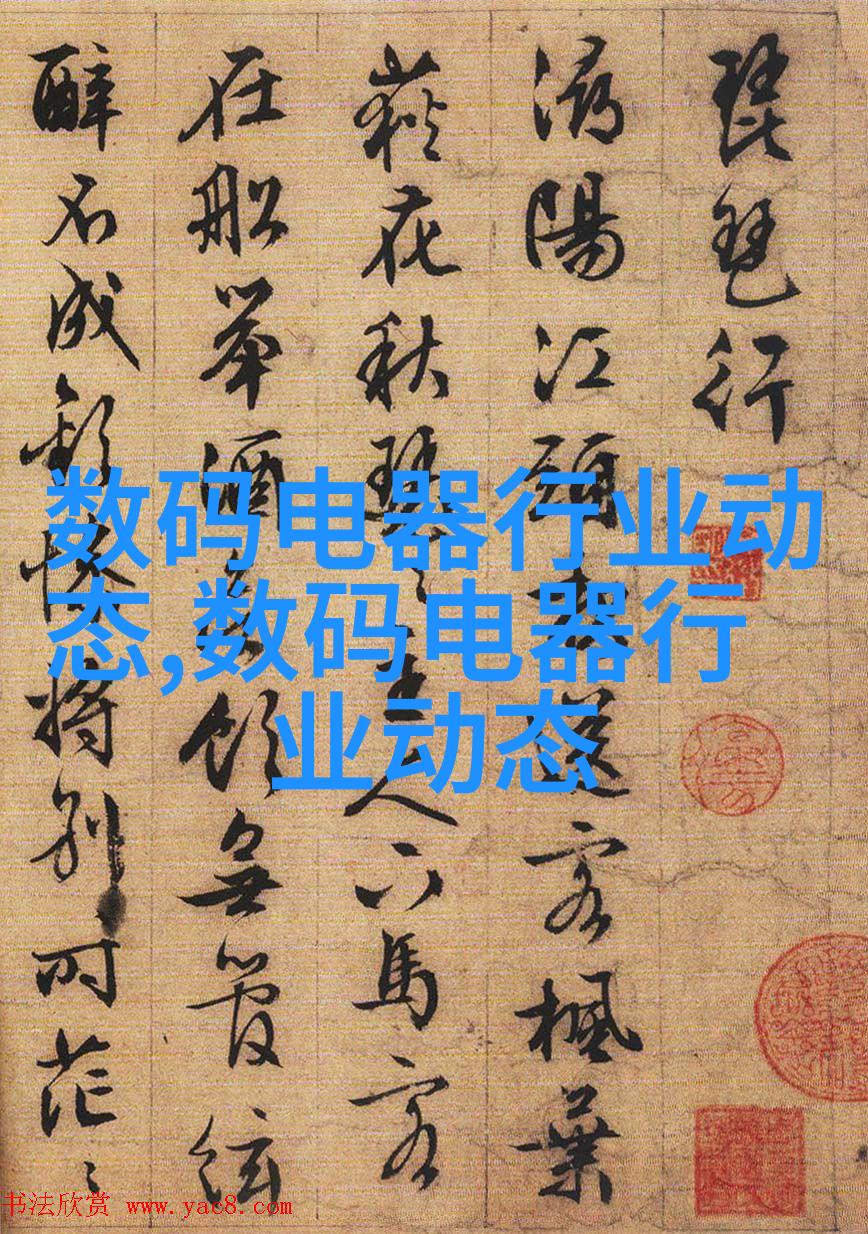 琵琶行
潯陽江頭夜送客楓葉
荻花秋瑟〻主人下馬客
在船舉酒欲飲無管絃
醉不成歡慘將別時茫〻
数码电器行业动
态,数码电器行
业动态
书法欣赏 www.yac8.com